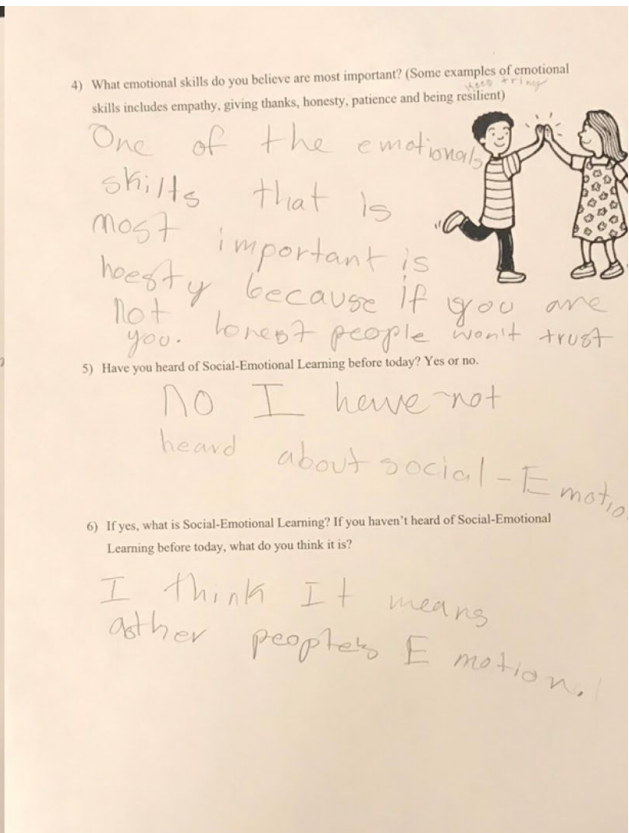 4) What emotional skills do you believe are most important? (Some examples of emotional
skills includes empathy, giving thanks, honesty, patience and being resilient)
One of the emotionals
skills that is
most important is
hoesty because if you are
not honest people won't trust
you.
5) Have you heard of Social-Emotional Learning before today? Yes or no.
No I have not
heard about social-Emotio
6) If yes, what is Social-Emotional Learning? If you haven't heard of Social-Emotional
Learning before today, what do you think it is?
I think It means
other people's Emotion.